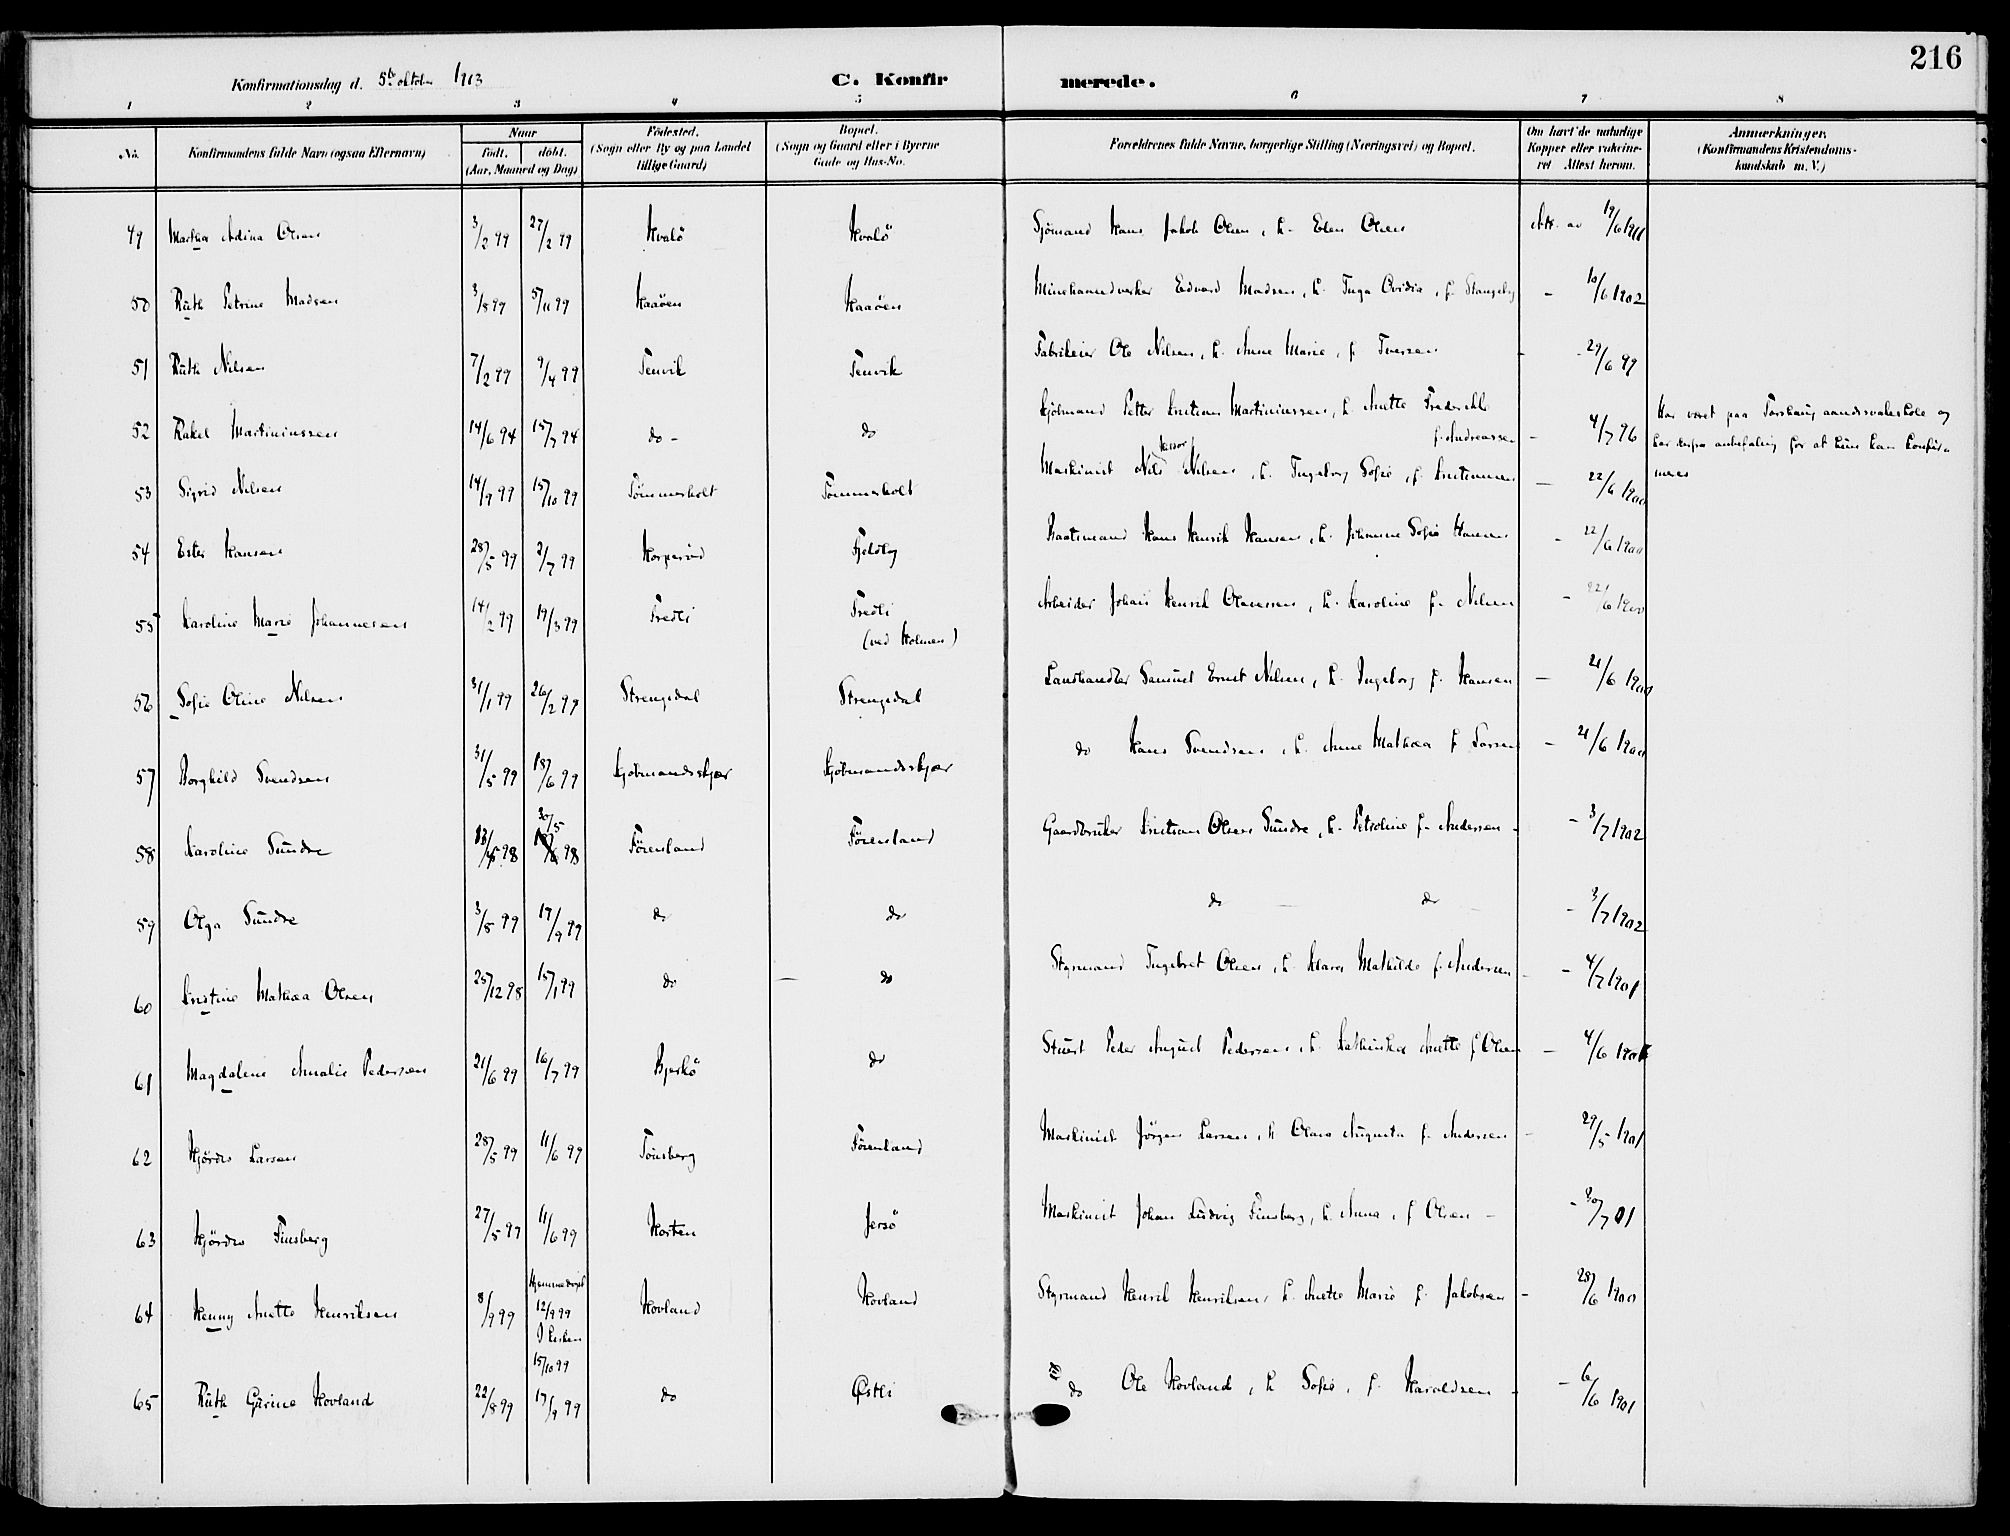 216
Konfirmationsdag d. 5te oktober 1913
C. Konfirmerede.
1 2 3 4 5 6 7 8
No.
Konfirmandens fulde Navn (ogsaa Efternavn)
Naar
födt. döbt.
(Aar, Maaned og Dag)
Födested.
(Sogn eller By og paa Landet
tillige Gaard)
Bopæl.
(Sogn og Gaard eller i Byerne
Gade og Hus-No.
Forældrenes fulde Navne, borgerlige Stilling (Næringsvei) og Bopæl.
Om havt de naturlige
Kopper eller vakcine-
ret Attest herom.
Anmærkninger.
(Konfirmandens Kristendoms-
kundskab m. V.)
49 Martha Adina Olsen 3/2 99 27/2 99 Hvalö Hvalö Sjömand Hans Jakob Olsen, h. Elen Olsen Att. av 19/6 1911
50 Ruth Petrine Madsen 3/8 99 5/11 99 Haaöen Haaöen Edvard Madsen, h. Inga Ovidia, f. Stangeby - 10/6 1902
51 Ruth Nilsen 7/2 99 9/4 99 Tenvik Tenvik Fabrikeier Ole Nilsen, h. Anne Marie, f. Iversen - 29/6 99
52 Rakel Martiniussen 14/6 94 15/7 94 do - do Kjöbmand Petter Kristian Martiniussen, h. Anette Frederikke
f. Andreassen - 4/7 96
Har været paa Torshaug aandssvakeskole og
har derfra anbefaling for at hun kan konfir-
meres
53 Sigrid Nilsen 14/9 99 15/10 99 Tömmerholt Tömmerholt Maskinist Nils Nilsen, h. Ingeborg Sofie, f. Kristiansen - 22/6 1900
54 Ester Hansen 28/5 99 2/7 99 Fjeldby Baatsmand Hans Henrik Hansen, h. Johanne Sofie Hansen - 22/6 1900
55 Karoline Marie Johannesen 14/2 99 19/3 99 Fredli Fredli
(ved Holmen)
Arbeider Johan Henrik h. Karoline f. Nilsen - 22/6 1900
56 Sofie Oline Nilsen 31/1 99 26/2 99 Strengsdal Strengsdal Landhandler Samuel Ernst Nilsen, h. Ingeborg f. Hansen - 21/6 1900
57 Borghild Svendsen 31/5 99 18/6 99 Kjöbmandsskjær Kjöbmandsskjær do Hans Svendsen, h. Anne Mathea f. Larsen - 21/6 1900
58 Karoline Sundre 98 30/5 98 Föienland Föienland Gaardbruker Kristian Olsen Sundre, h. Petroline f. Andersen - - 3/7 1902
59 Olga Sundre 3/8 99 17/9 99 do do do do - 3/7 1902
60 Kristine Mathea Olsen 25/12 98 15/1 99 do - do Styrmand Ingebret Olsen, h. Klara Mathilde f. Andersen - - 4/7 1901
61 Magdalene Amalie Pedersen 21/6 99 16/7 99 Bjerkö do Stuert Peder August Pedersen, h. Kathinka Anette f. Olsen - 4/6
62 Hjördis Larsen 28/5 99 11/6 99 Tönsberg Föienland Maskinist Jörgen Larsen, h. Olava Augusta f. Andersen - 29/5 1901
63 Hjördis Tinsberg 27/5 99 11/6 99 Horten Jersö Maskinist Johan Ludvig Tinsberg, h. Anna, f. Olsen - - 30/7 01
64 Henny Anette Henriksen 8/9 99 Hjemmedöpt
12/9 99
I kirken
15/10 99
Hovland Hovland Styrmand Henrik Henriksen, h. Anette Marie f. Jakobsen - 28/6 1900
65 Ruth Gurine Hovland 22/8 99 17/9 99 do Østli do Ole Hovland, h. Sofie, f. Haraldsen - - 6/6 1901